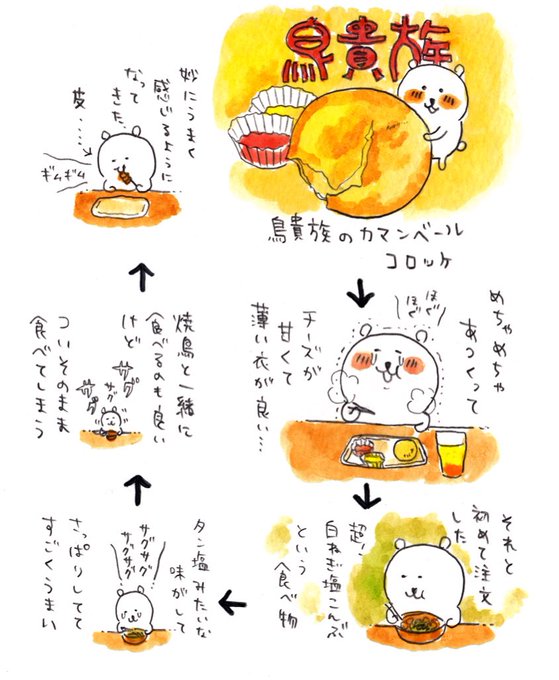 鳥貴族
鳥貴族のカマンベール
コロッケ
ほぐ
ほぐ
めちゃめちゃ
あつくって
チーズが
甘くて
薄い衣が良い…
それと
初めて注文
した
超!
白ねぎ塩こんぶ
という
食べ物
タン塩みたいな
味がして
さっぱりしてて
すごくうまい
サグサグ
サグサグ
焼鳥と一緒に
食べるのも良い
けど
サグ
サグ
サグ
ついそのまま
食べてしまう
妙にうまく
感じるように
なって
きた、
皮……
ギムギム